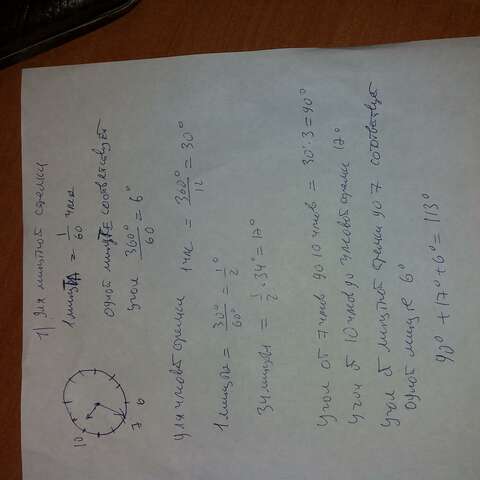 1) для минутной стрелки
1 минута = 1/60 часа
одной минуте соответствует
угол 360°/60 = 6°
10
7 6
для часовой стрелки 1 час = 360°/12 = 30°
1 минута = 30°/60° = 1/2°
34 минуты = 1/2 · 34° = 17°
угол от 7 часов до 10 часов = 30°·3=90°
угол от 10 часов до часовой стрелки 17°
угол от минутной стрелки до 7 соответствует
одной минуте 6°
90° + 17° + 6° = 113°